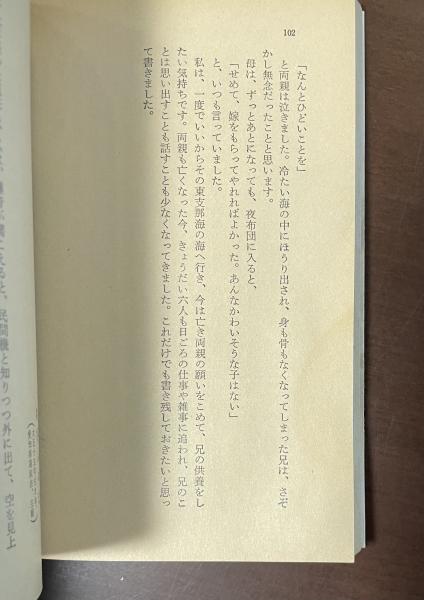 102
「なんとひどいことを」
と両親は泣きました。冷たい海の中にほうり出され、身も骨もなくなってしまった兄は、さぞ
かし無念だったことと思います。
母は、ずっとあとになっても、夜布団に入ると、
「せめて、嫁をもらってやれればよかった。あんなかわいそうな子はない」
と、いつも言っていました。
私は、一度でいいからその東支那海の海へ行き、今は亡き両親の願いをこめて、兄の供養をし
たい気持ちです。両親も亡くなった今、きょうだい六人も日ごろの仕事や雑事に追われ、兄のこ
とは思い出すことも話すことも少なくなってきました。これだけでも書き残しておきたいと思っ
て書きました。
と、民間機と知りつつ外に出て、空を見上